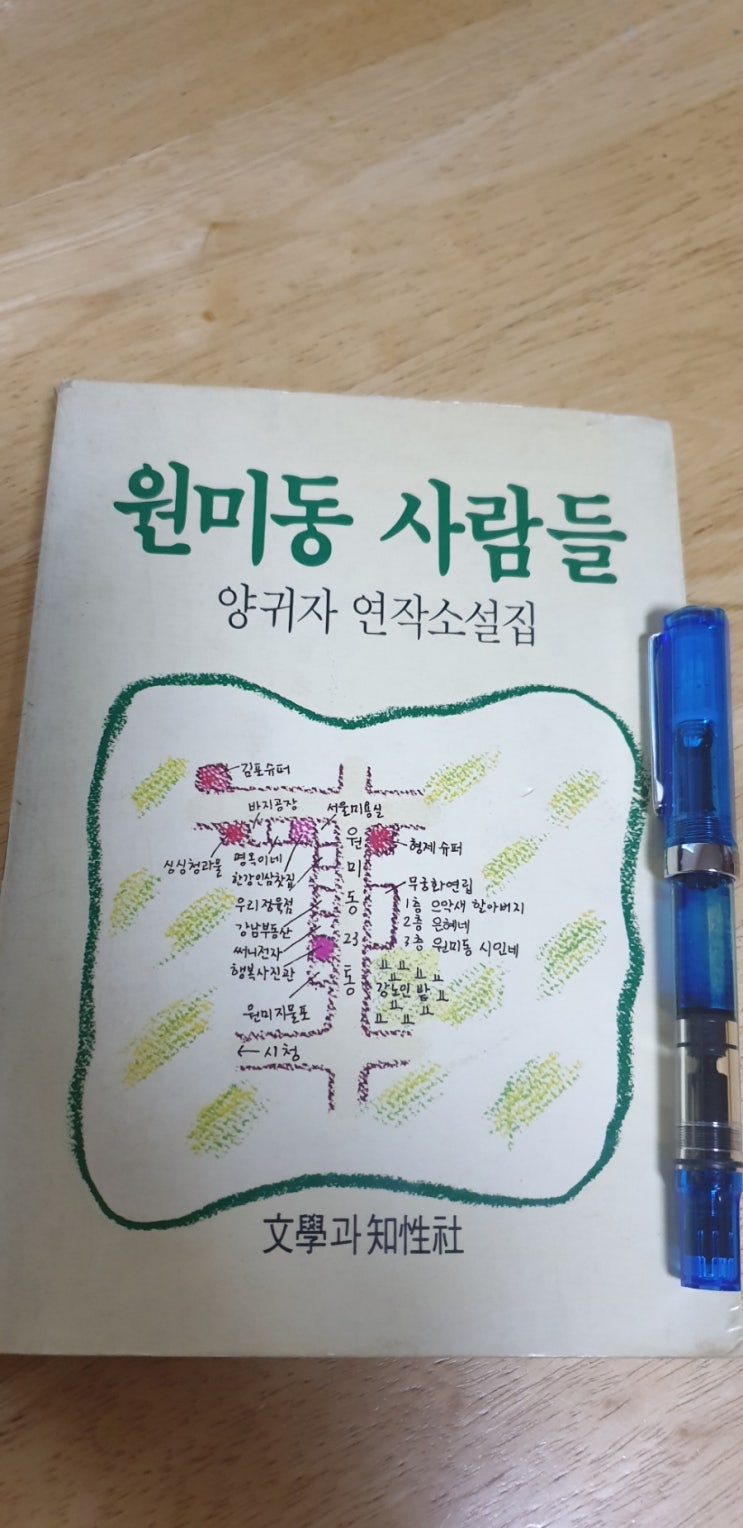 원미동 사람들
양귀자 연작소설집
김포슈퍼
바지공장
서울미용실
싱싱청과물
명옥이네
한강인삼찻집
형제슈퍼
우리정육점
강남부동산
써니전자
행복사진관
원미지물포
원미동23통
무궁화연립
1층 으악새 할아버지
2층 은혜네
3층 원미동 시인네
강노인 밭
← 시청
文學과知性社